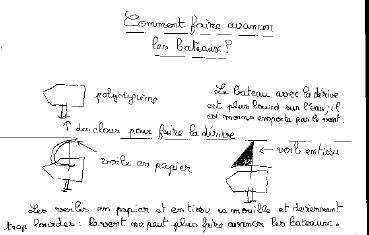 Comment faire avancer
les bateaux?
polystyrène
Le bateau avec la dérive
est plus lourd sur l'eau; il
est moins emporté par le vent.
des clous pour faire la dérive
voile en papier
voile en tissu
Les voiles en papier et en tissu se mouille et deviennent
trop lourdes: le vent ne peut plus faire avancer les bateaux.